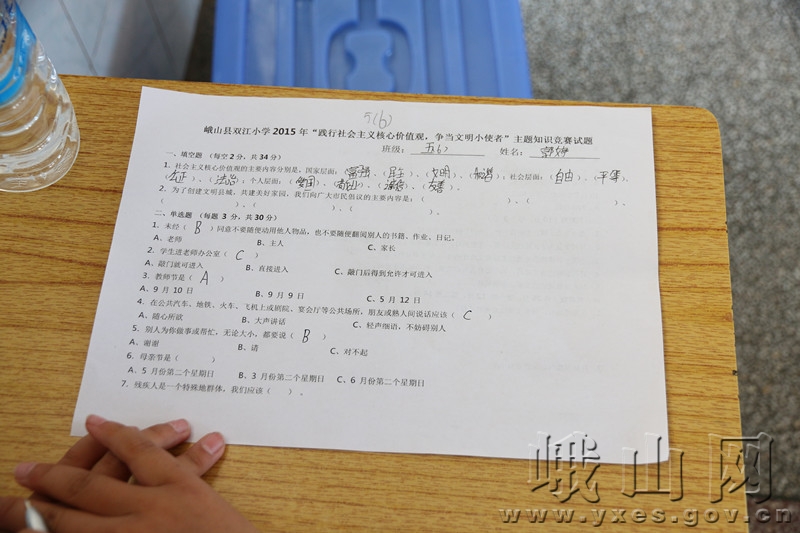 5(6)
峨山县双江小学 2015 年“践行社会主义核心价值观，争当文明小使者”主题知识竞赛试题
班级：五(6) 姓名：
一、填空题 （每空 2 分，共 34 分）
1. 社会主义核心价值观的主要内容分别是，国家层面：（富强）、（民主）、（文明）、（和谐）；社会层面：（自由）、（平等）、
（公正）、（法治）；个人层面：（爱国）、（敬业）、（诚信）、（友善）。
2. 为了创建文明县城，共建美好家园，我们向广大市民倡议的主要内容是：（ ）、（ ）、
（ ）、（ ）、（ ）。
二、单选题 （每题 3 分，共 30 分）
1. 未经（ B ）同意不要随便动用他人物品，也不要随便翻阅别人的书籍、作业、日记。
A、老师 B、主人 C、家长
2. 学生进老师办公室（ C ）
A、敲门就可进入 B、直接进入 C、敲门后得到允许才可进入
3. 教师节是（ A ）
A、9 月 10 日 B、9 月 9 日 C、5 月 12 日
4. 在公共汽车、地铁、火车、飞机上或剧院、宴会厅等公共场所，朋友或熟人间说话应该（ C ）
A、随心所欲 B、大声讲话 C、轻声细语，不妨碍别人
5. 别人为你做事或帮忙，无论大小，都要说（ B ）
A、谢谢 B、请 C、对不起
6. 母亲节是（ ）
A、5 月份第二个星期日 B、3 月份第二个星期日 C、6 月份第二个星期日
7. 残疾人是一个特殊地群体，我们应该（ ）。
峨山网
www.yxes.gov.cn